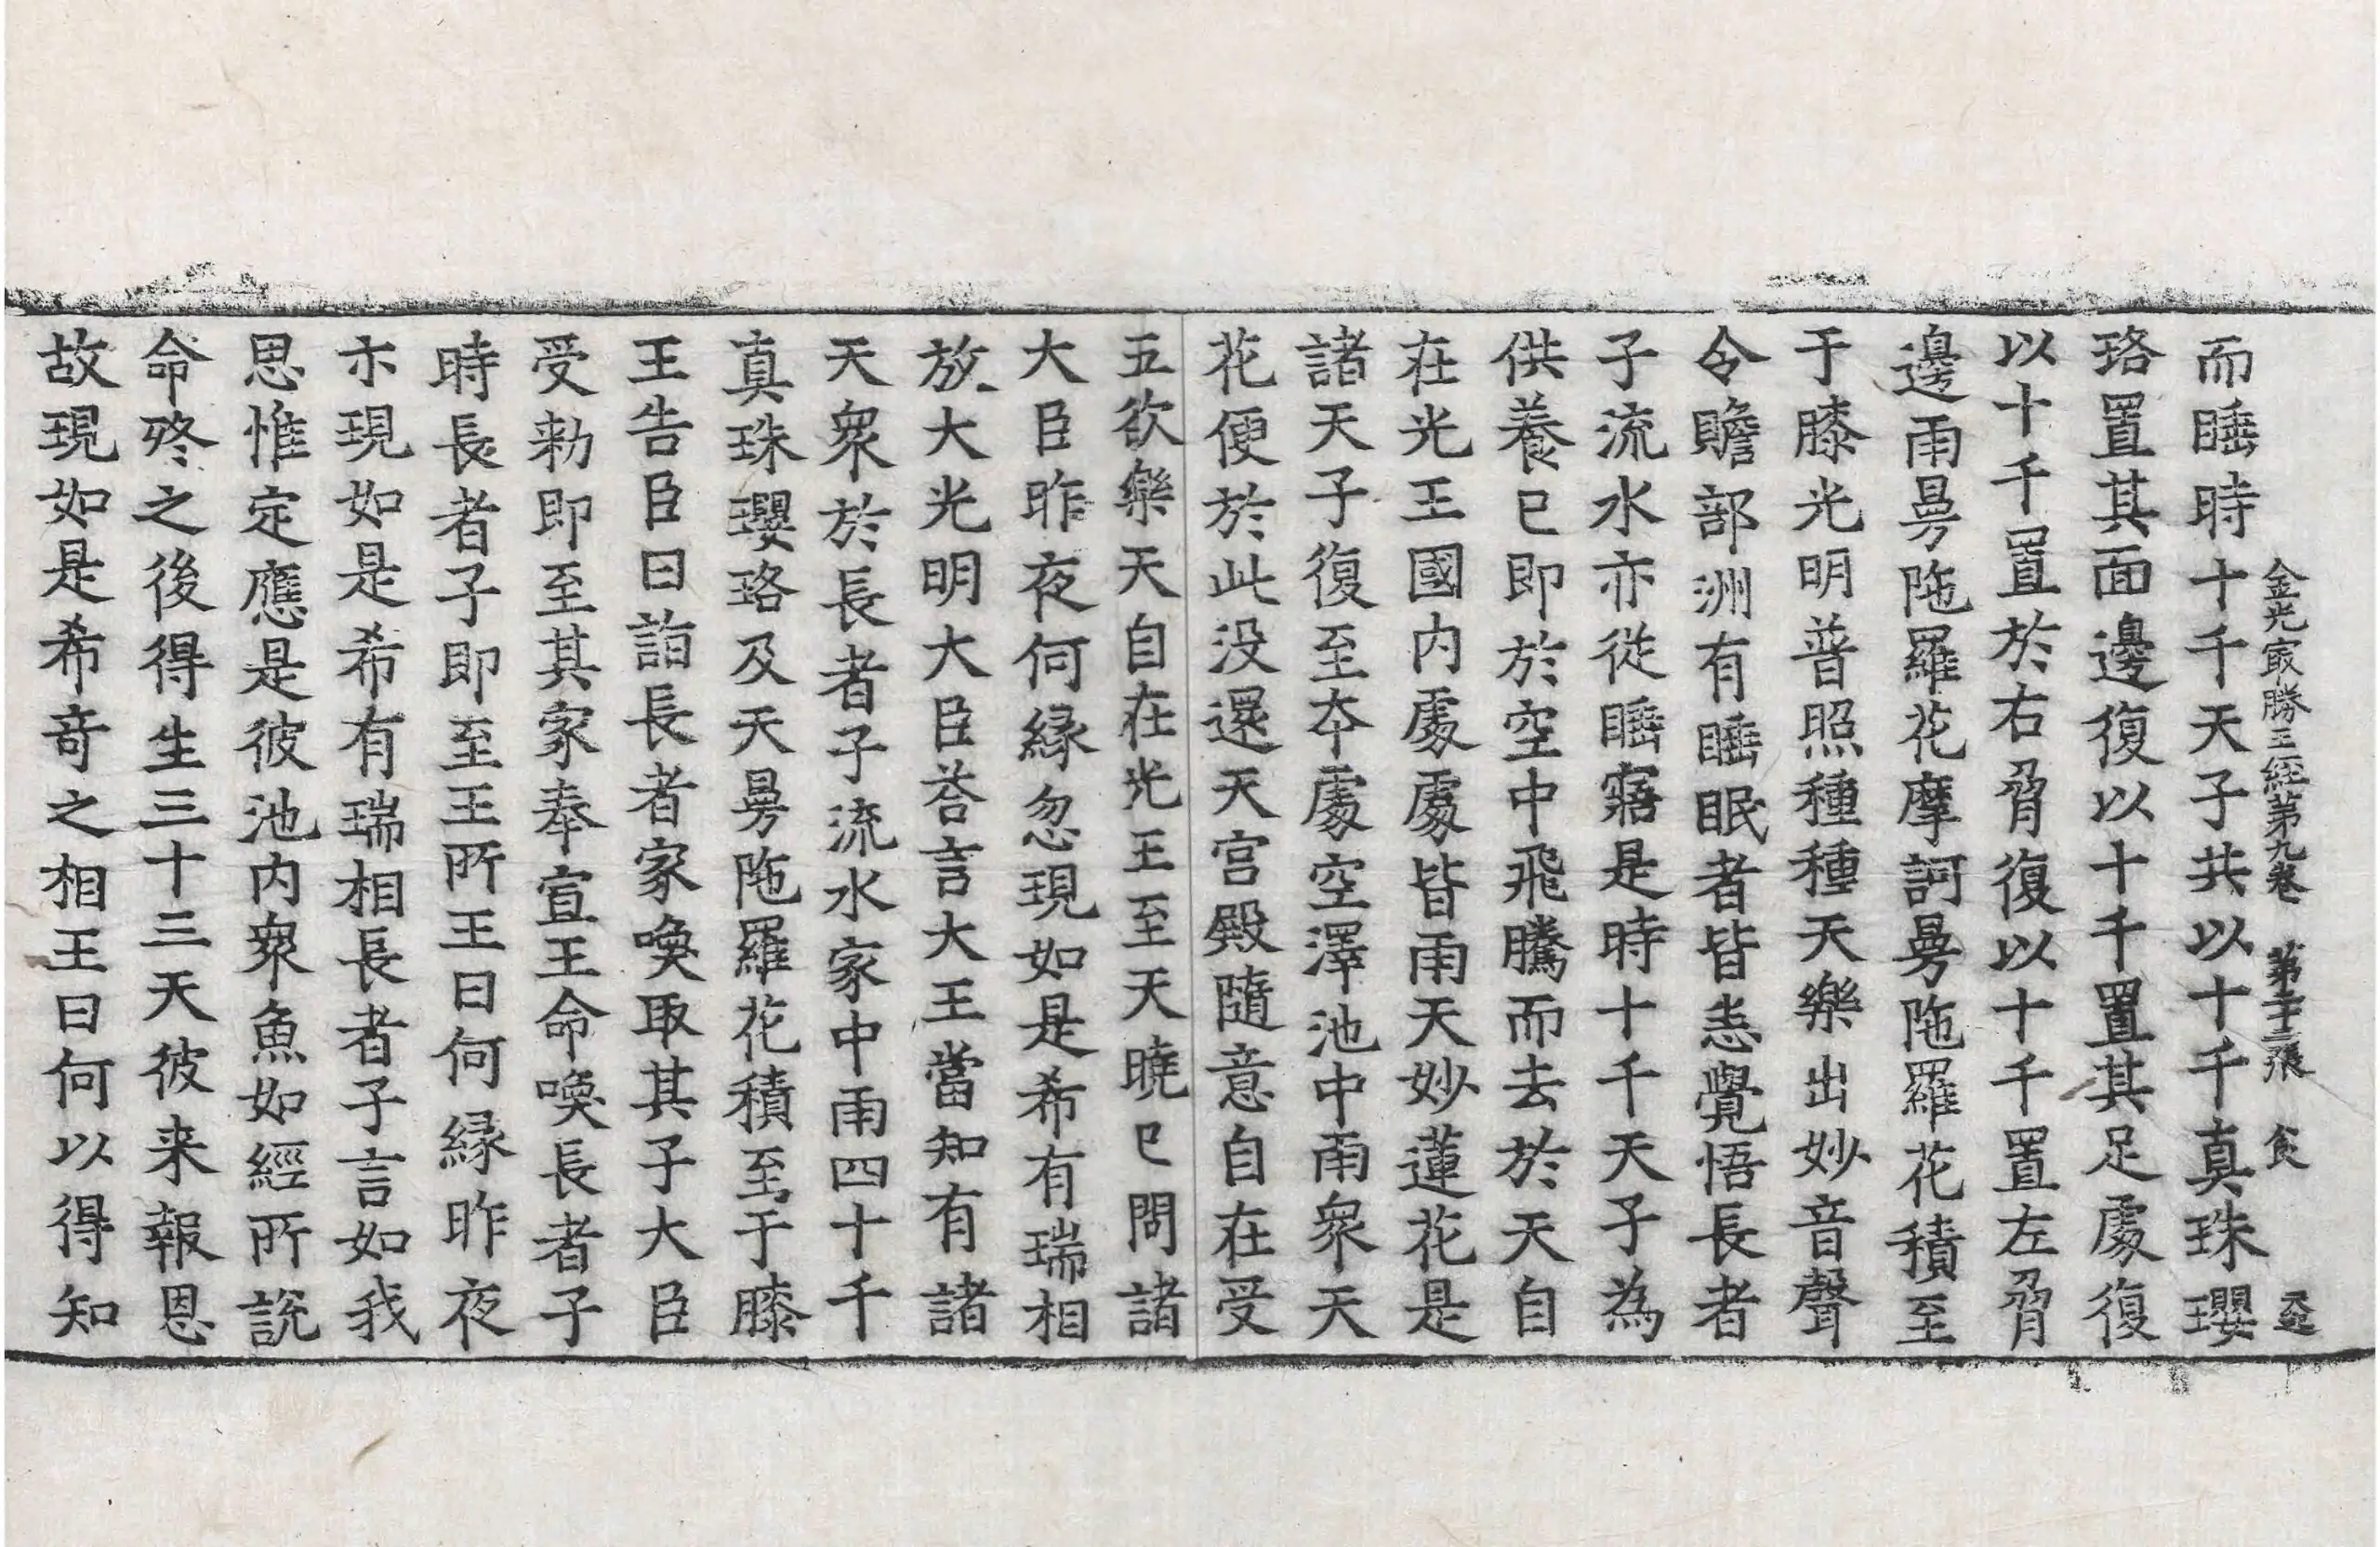 金光冣勝王經第九卷 第二十三張 食
而睡時十千天子共以十千真珠瓔
珞置其面邊復以十千置其足處復
以十千置於右脅復以十千置左脅
邊雨曼陁羅花摩訶曼陁羅花積至
于膝光明普照種種天樂出妙音聲
令贍部洲有睡眠者皆悉覺悟長者
子流水亦從睡寤是時十千天子為
供養已即於空中飛騰而去於天自
在光王國内處處皆雨天妙蓮花是
諸天子復至本處空澤池中雨衆天
花便於此没還天宮殿隨意自在受
五欲樂天自在光王至天曉已問諸
大臣昨夜何緣忽現如是希有瑞相
放大光明大臣荅言大王當知有諸
天衆於長者子流水家中雨四十千
真珠瓔珞及天曼陁羅花積至于膝
王告臣曰詣長者家喚取其子大臣
受勑即至其家奉宣王命喚長者子
時長者子即至王所王曰何緣昨夜
亦現如是希有瑞相長者子言如我
思惟定應是彼池内衆魚如經所説
命終之後得生三十三天彼来報恩
故現如是希竒之相王曰何以得知